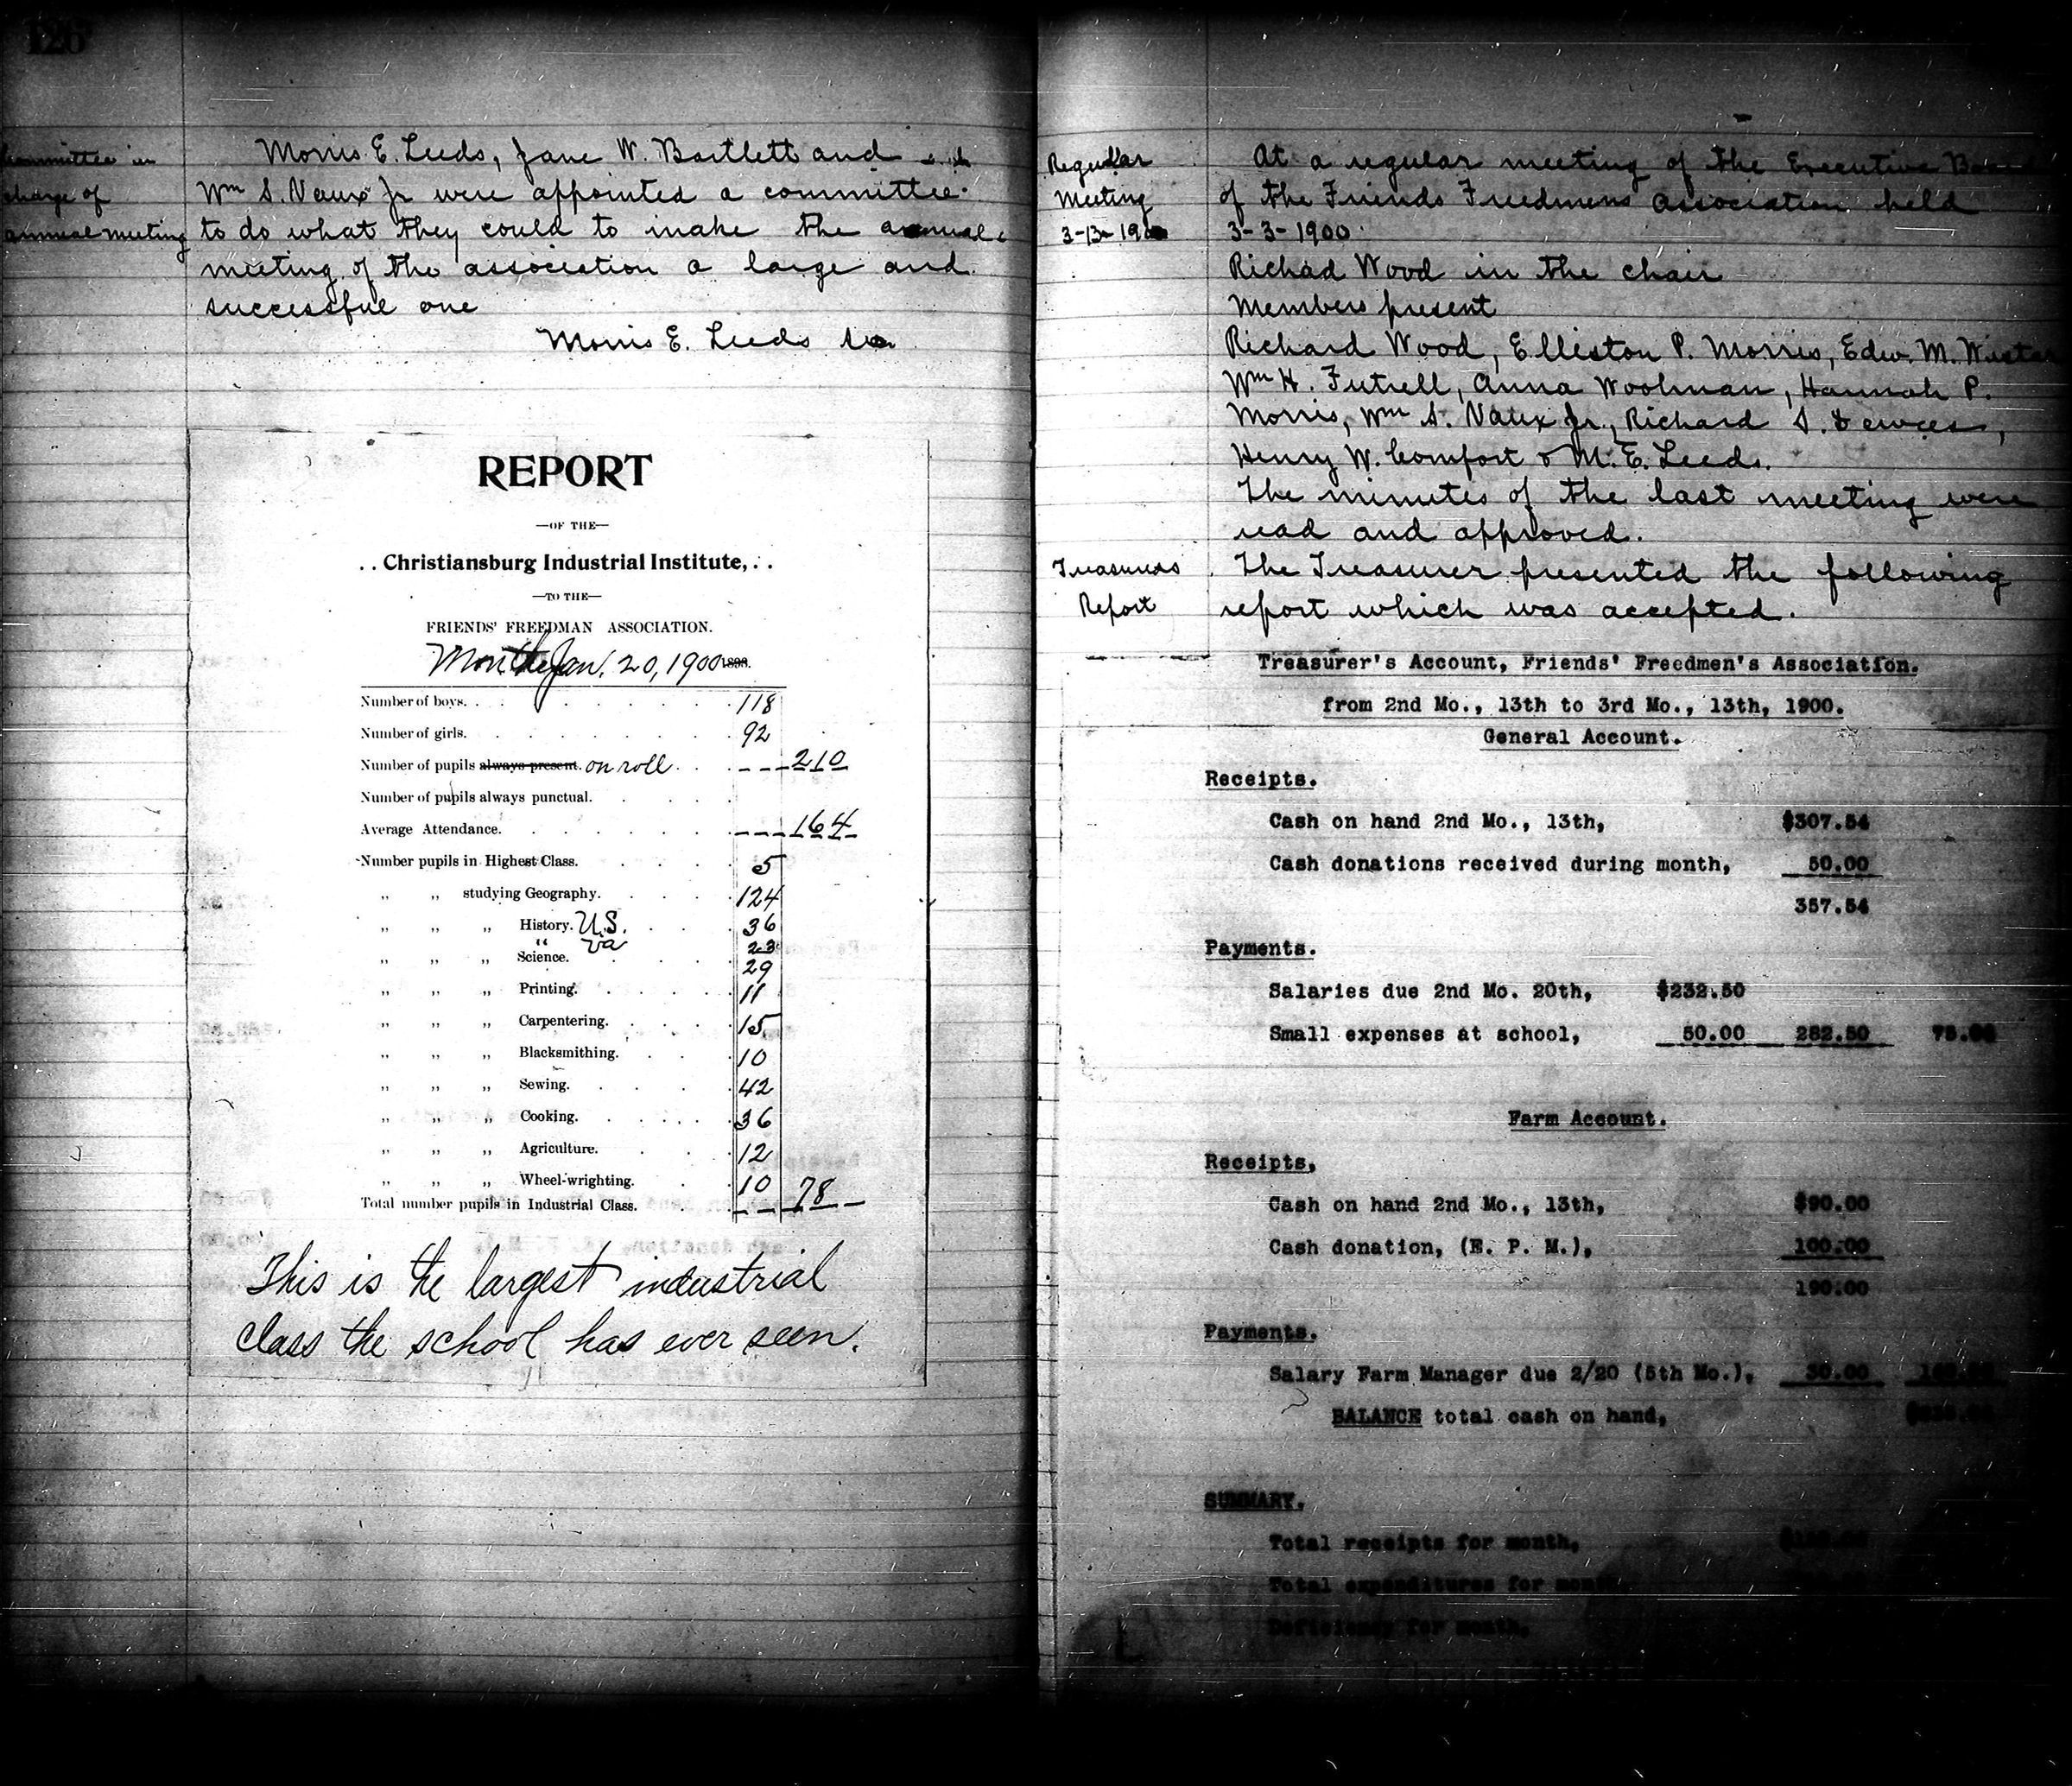 126
Committee in
charge of
annual meeting
Morris E. Leeds, Jane W. Bartlett and
Wm S. Vaux Jr were appointed a committee
to do what they could to make the annual
meeting of the association a large and
successful one
Morris E. Leeds
REPORT
—OF THE—
. . Christiansburg Industrial Institute, . .
—TO THE—
FRIENDS' FREEDMAN ASSOCIATION.
Month Jan. 20, 1900 1898.
Number of boys. 118
Number of girls. 92
Number of pupils always present. on roll 210
Number of pupils always punctual.
Average Attendance. 164
Number pupils in Highest Class. 5
,, ,, studying Geography. 124
,, ,, ,, History. U.S. 36
" Va 23
,, ,, ,, Science. 29
,, ,, ,, Printing. 11
,, ,, ,, Carpentering. 15
,, ,, ,, Blacksmithing. 10
,, ,, ,, Sewing. 42
,, ,, ,, Cooking. 36
,, ,, ,, Agriculture. 12
,, ,, ,, Wheel-wrighting. 10
Total number pupils in Industrial Class. 78
This is the largest industrial
class the school has ever seen.
Regular
Meeting
3-13-1900
At a regular meeting of the Executive Board
of the Friends Freedmens Association held
3-3-1900
Richad Wood in the chair
Members present
Richard Wood, Elliston P. Morris, Edw. M. Wistar
Wm H. Futrell, Anna Woolman, Hannah P.
Morris, Wm S. Vaux Jr., Richard S. Dewees,
Henry W. Comfort & M. E. Leeds.
The minutes of the last meeting were
read and approved.
Treasurers
Report
The Treasurer presented the following
report which was accepted.
Treasurer's Account, Friends' Freedmen's Association.
from 2nd Mo., 13th to 3rd Mo., 13th, 1900.
General Account.
Receipts.
Cash on hand 2nd Mo., 13th, $307.54
Cash donations received during month, 50.00
357.54
Payments.
Salaries due 2nd Mo. 20th, $232.50
Small expenses at school, 50.00 282.50
Farm Account.
Receipts,
Cash on hand 2nd Mo., 13th, $90.00
Cash donation, (E. P. M.), 100.00
190.00
Payments.
Salary Farm Manager due 2/20 (5th Mo.), 30.00
BALANCE total cash on hand,
SUMMARY.
Total receipts for month,
Total expenditures for month,
Deficiency for month,